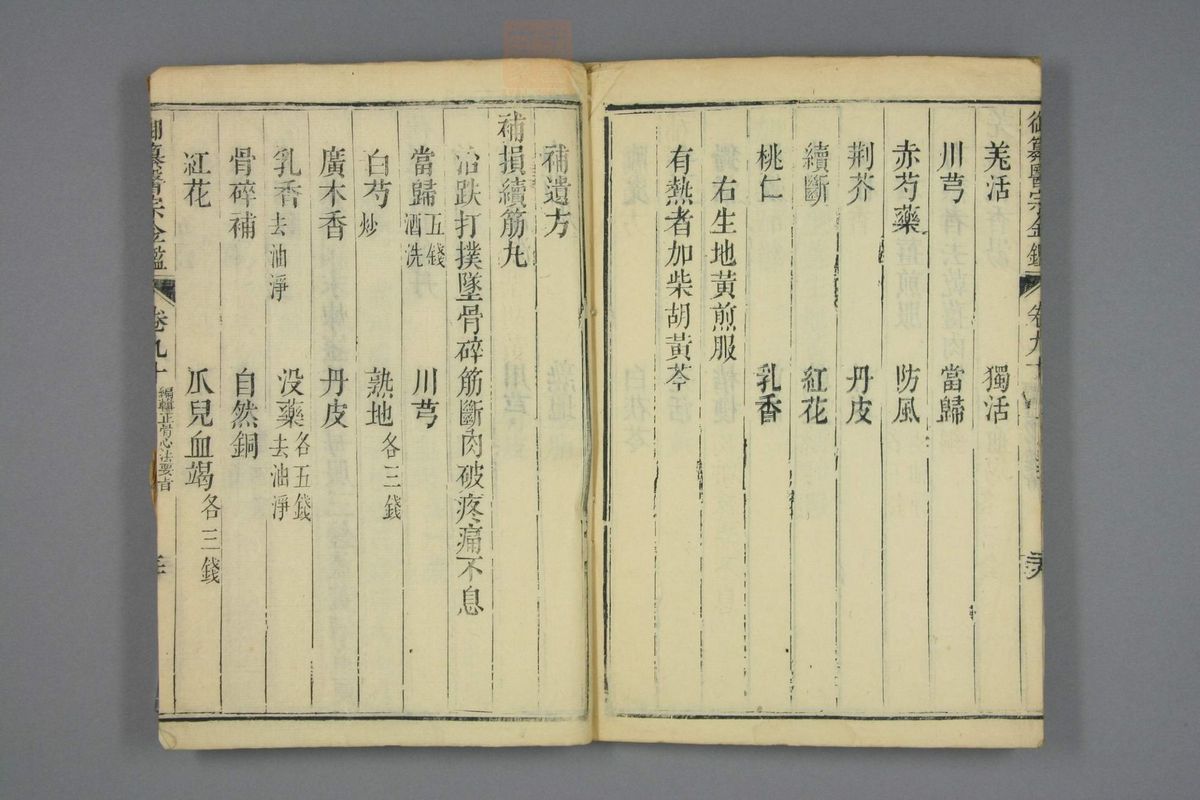 羗活　獨活
川芎　當歸
赤芍藥　防風
荆芥　丹皮
續斷　紅花
桃仁　乳香
右生地黃煎服
有熱者加柴胡黃芩
補遺方
補損續筋丸
治跌打撲墜骨碎筋斷肉破疼痛不息
當歸五錢酒洗　川芎
白芍炒　熟地各三錢
廣木香　丹皮
乳香去油淨　没藥去油淨各五錢
骨碎補　自然銅
紅花　瓜兒血竭各三錢
御纂醫宗金鑑　卷九十　編輯正骨心法要旨